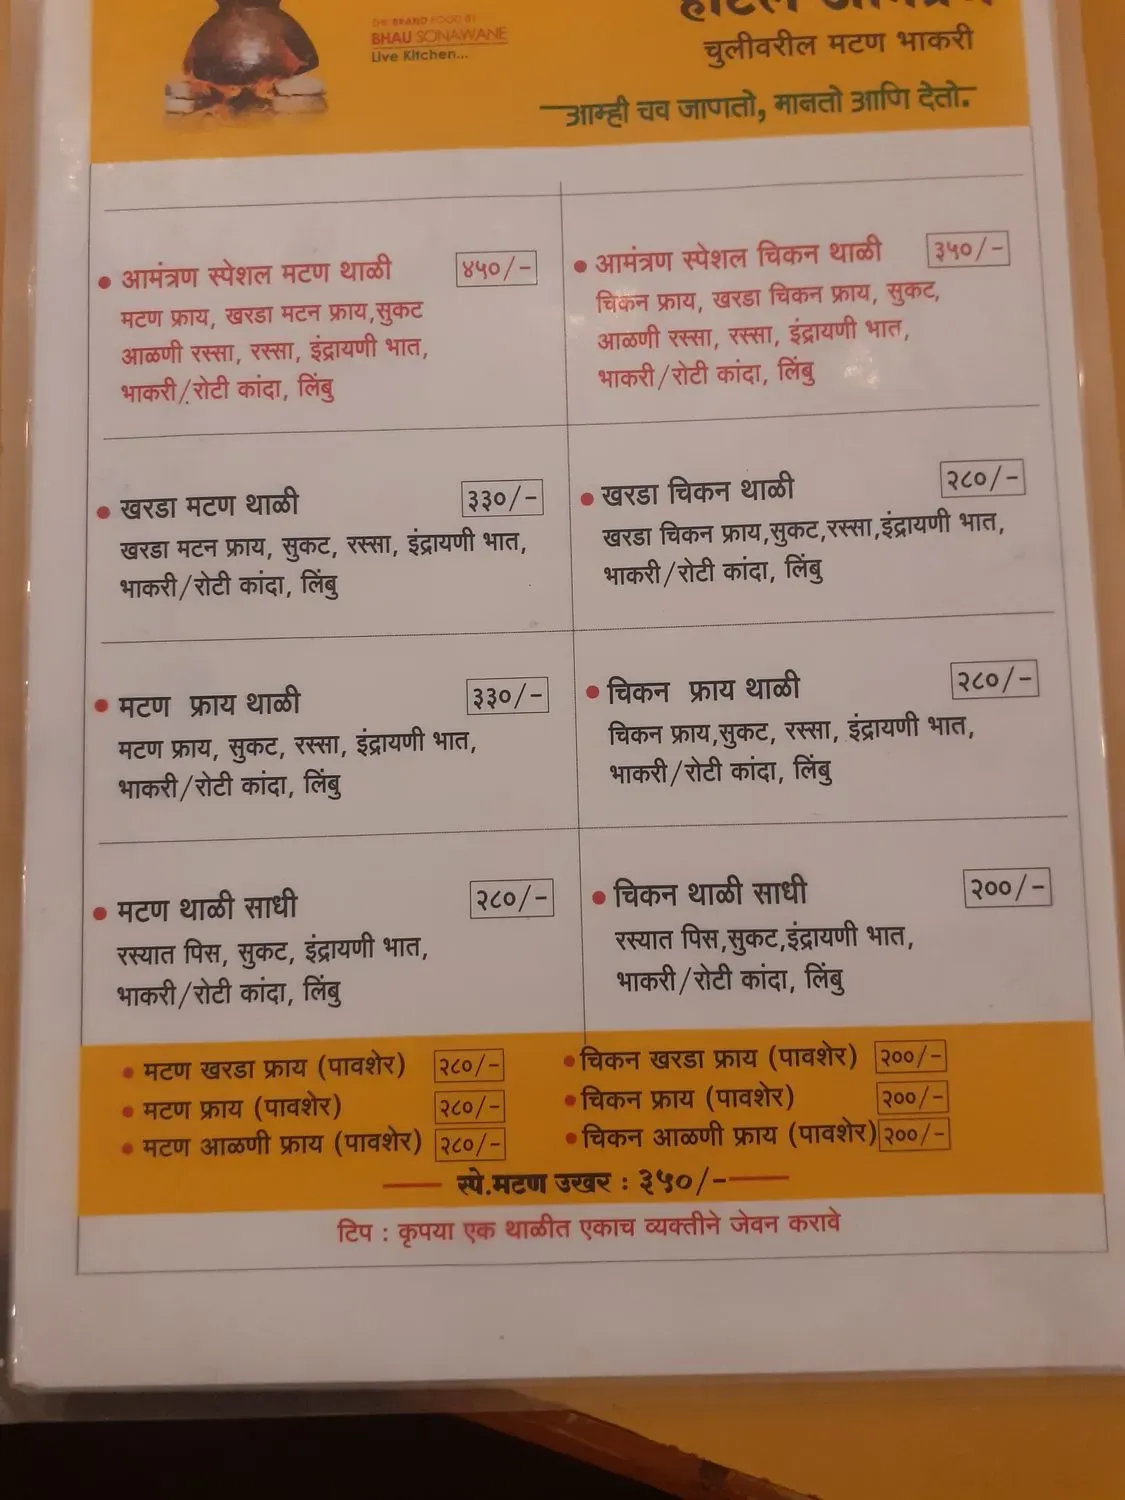 THE BRAND FOOD BY
BHAU SONAWANE
Live Kitchen...
हॉटेल आमंत्रण
चुलीवरील मटण भाकरी
आम्ही चव जाणतो, मानतो आणि देतो.
• आमंत्रण स्पेशल मटण थाळी ४५०/-
मटण फ्राय, खरडा मटन फ्राय,सुकट
आळणी रस्सा, रस्सा, इंद्रायणी भात,
भाकरी/रोटी कांदा, लिंबु
• आमंत्रण स्पेशल चिकन थाळी ३५०/-
चिकन फ्राय, खरडा चिकन फ्राय, सुकट,
आळणी रस्सा, रस्सा, इंद्रायणी भात,
भाकरी/रोटी कांदा, लिंबु
• खरडा मटण थाळी ३३०/-
खरडा मटन फ्राय, सुकट, रस्सा, इंद्रायणी भात,
भाकरी/रोटी कांदा, लिंबु
• खरडा चिकन थाळी २८०/-
खरडा चिकन फ्राय,सुकट,रस्सा,इंद्रायणी भात,
भाकरी/रोटी कांदा, लिंबु
• मटण फ्राय थाळी ३३०/-
मटण फ्राय, सुकट, रस्सा, इंद्रायणी भात,
भाकरी/रोटी कांदा, लिंबु
• चिकन फ्राय थाळी २८०/-
चिकन फ्राय,सुकट, रस्सा, इंद्रायणी भात,
भाकरी/रोटी कांदा, लिंबु
• मटण थाळी साधी २८०/-
रस्यात पिस, सुकट, इंद्रायणी भात,
भाकरी/रोटी कांदा, लिंबु
• चिकन थाळी साधी २००/-
रस्यात पिस,सुकट,इंद्रायणी भात,
भाकरी/रोटी कांदा, लिंबु
• मटण खरडा फ्राय (पावशेर) २८०/-
• मटण फ्राय (पावशेर) २८०/-
• मटण आळणी फ्राय (पावशेर) २८०/-
• चिकन खरडा फ्राय (पावशेर) २००/-
• चिकन फ्राय (पावशेर) २००/-
• चिकन आळणी फ्राय (पावशेर) २००/-
स्पे.मटण उखर : ३५०/-
टिप : कृपया एक थाळीत एकाच व्यक्तीने जेवन करावे